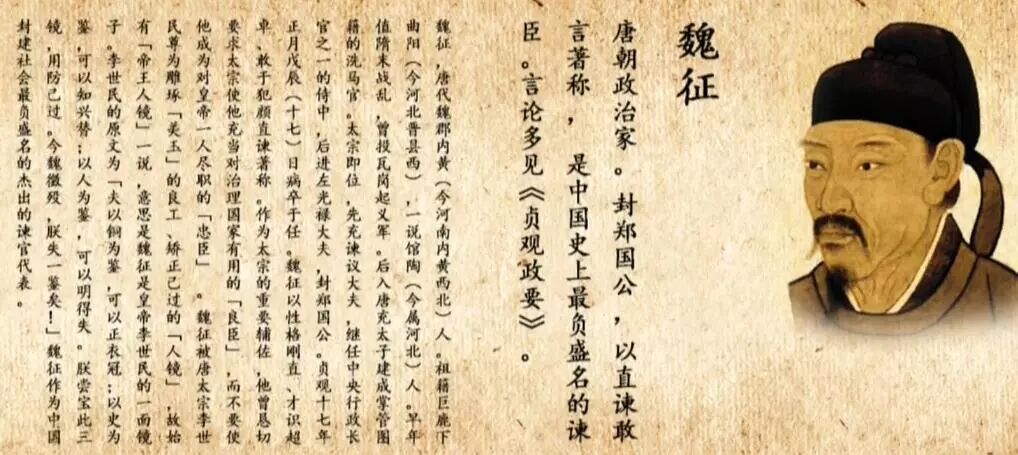 魏征
唐朝政治家。封郑国公，以直谏敢
言著称，是中国史上最负盛名的谏
臣。言论多见《贞观政要》。
魏征，唐代魏郡内黄（今河南内黄西北）人。祖籍巨鹿下
曲阳（今河北晋县西），一说馆陶（今属河北）人。早年
值隋末战乱，曾投瓦岗起义军。后入唐充太子建成掌管图
籍的洗马官。太宗即位，先充谏议大夫，继任中央行政长
官之一的侍中，后进左光禄大夫，封郑国公。贞观十七年
正月戊辰（十七）日病卒于任。魏征以性格刚直、才识超
卓、敢于犯颜直谏著称。作为太宗的重要辅佐，他曾恳切
要求太宗使他充当对治理国家有用的「良臣」，而不要使
他成为对皇帝一人尽职的「忠臣」。魏征被唐太宗李世
民尊为雕琢「美玉」的良工、矫正己过的「人镜」，故始
有「帝王人镜」一说，意思是魏征是皇帝李世民的一面镜
子。李世民的原文为「夫以铜为鉴，可以正衣冠；以史为
鉴，可以知兴替；以人为鉴，可以明得失。朕尝宝此三
镜，用防己过。今魏徵殁，朕失一鉴矣！」魏征作为中国
封建社会最负盛名的杰出的谏官代表。